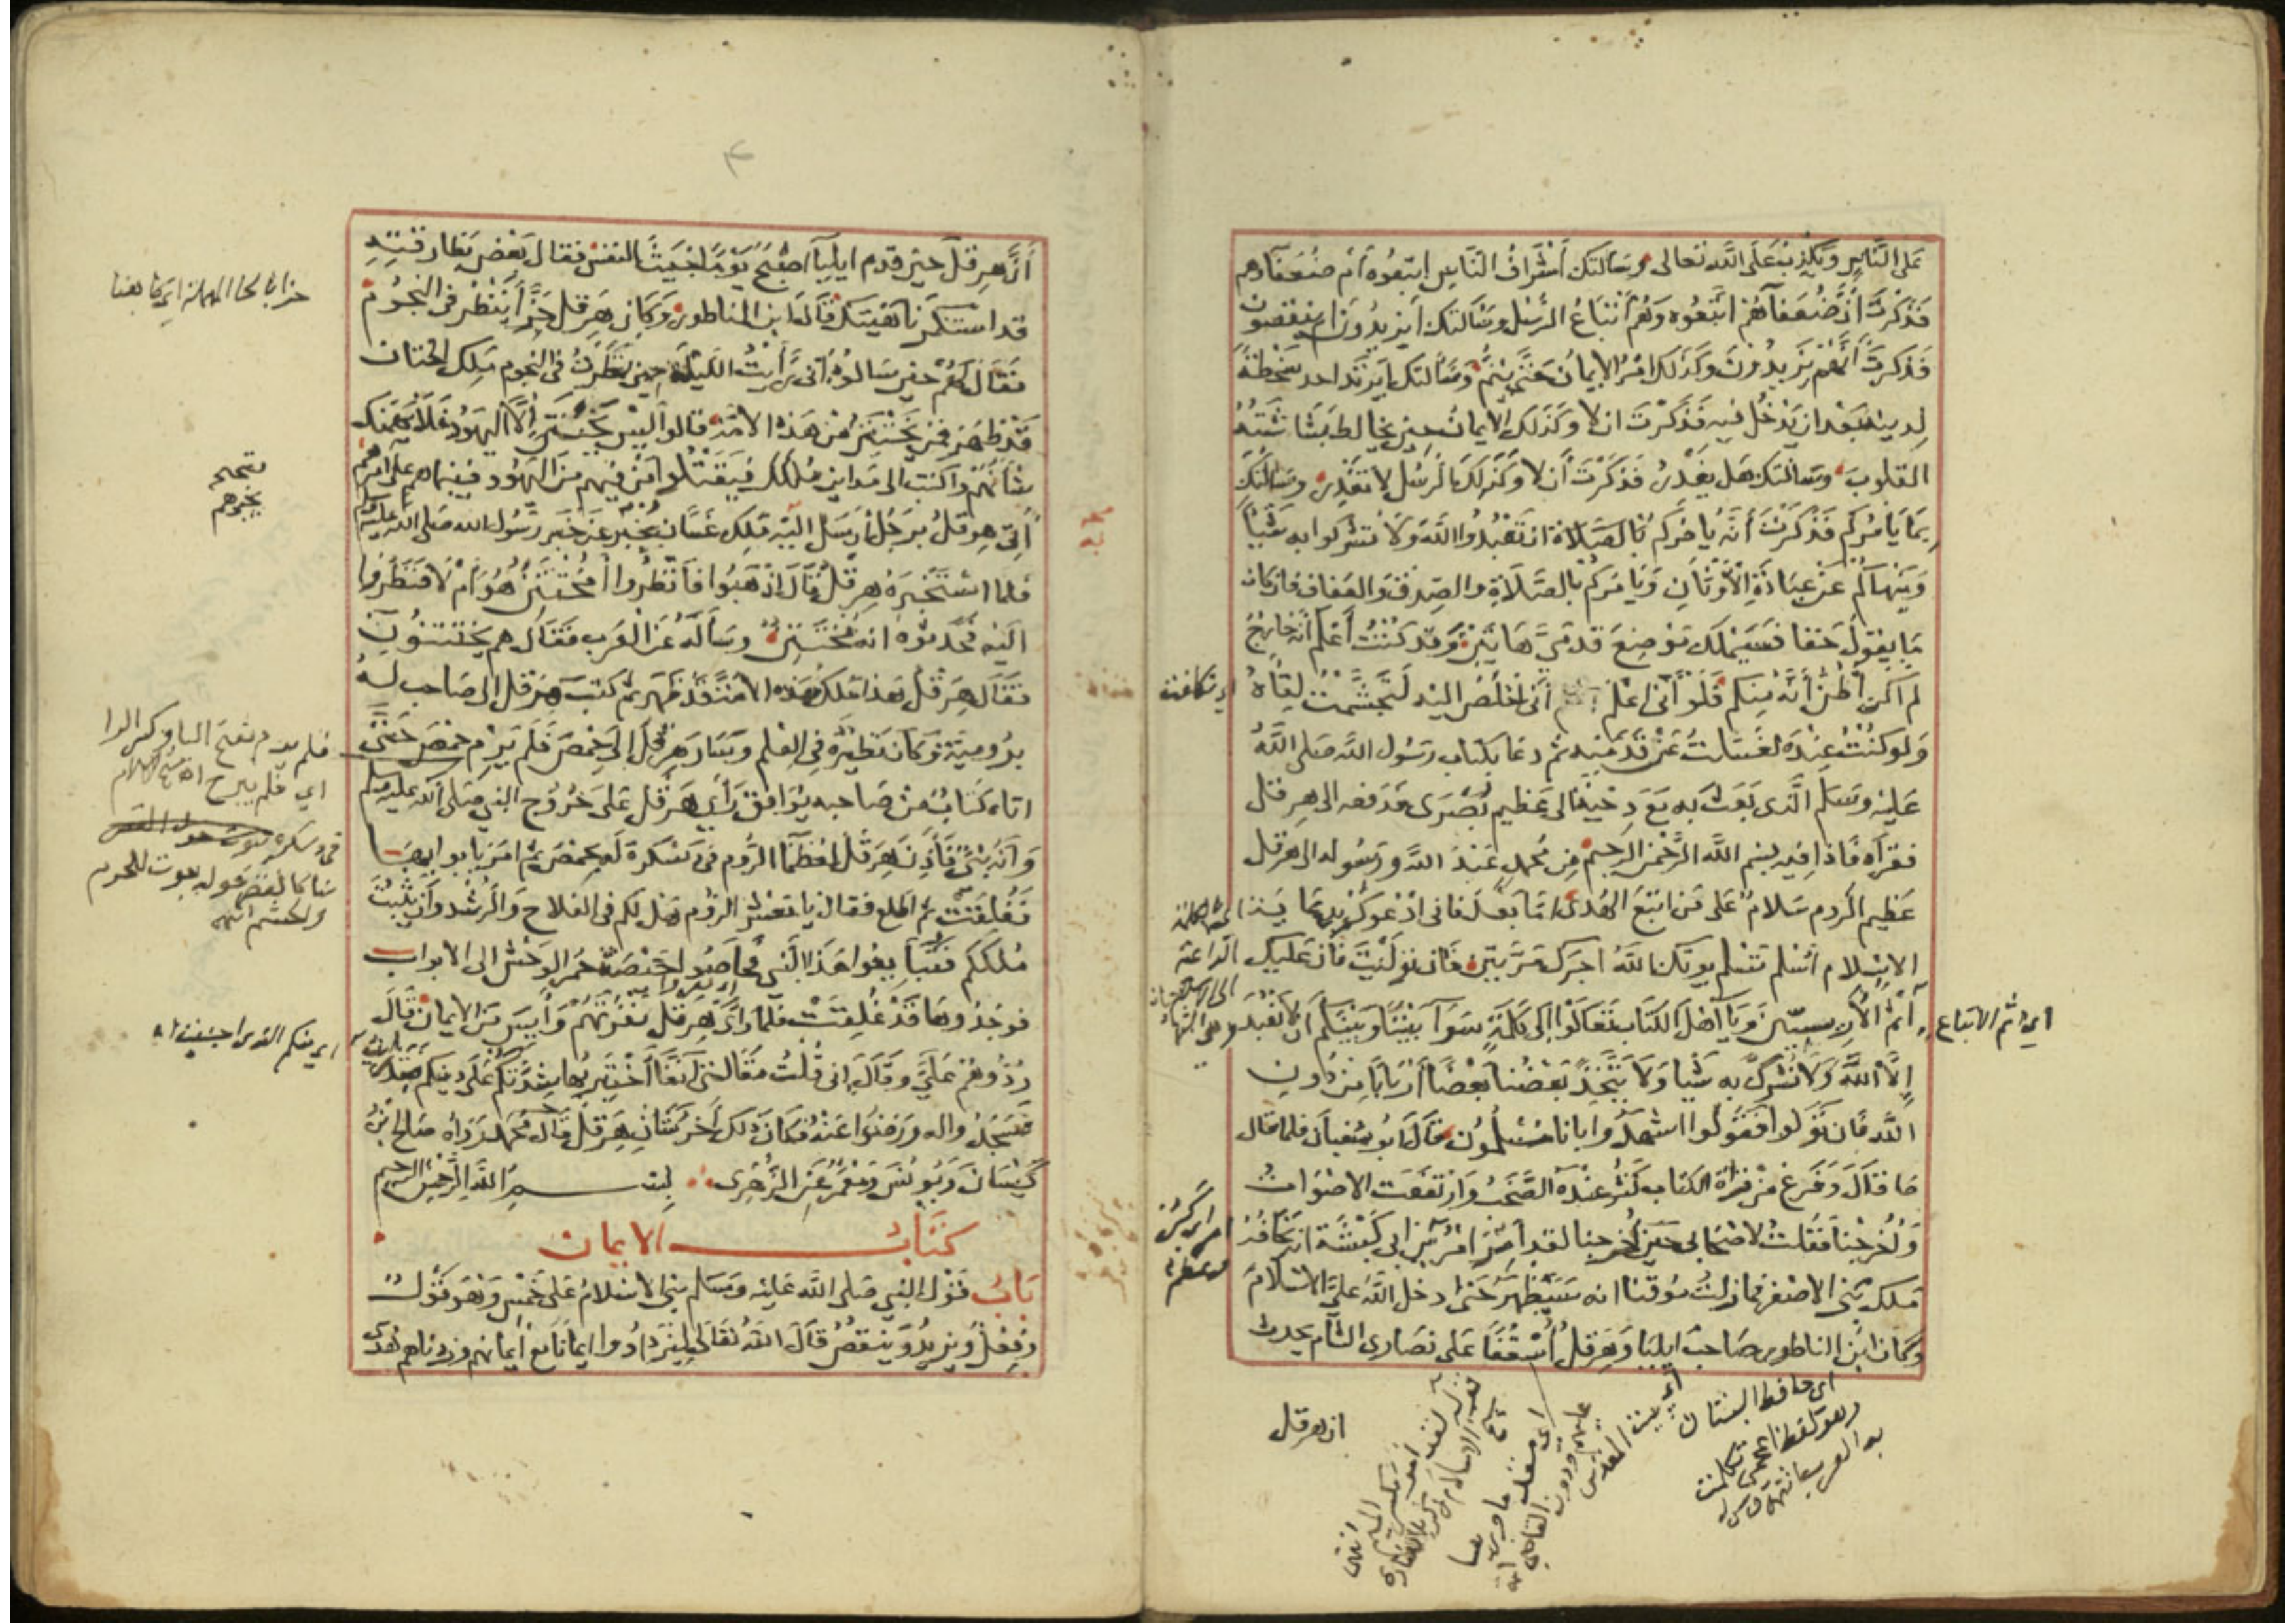 على الناس ويكذب على الله تعالى وسالتك أشراف الناس اتبعوه أم ضعفاؤهم
فذكرت أن ضعفآهم اتبعوه وهم أتباع الرسل وسالتك أيزيدون ام ينقصون
فذكرت أنهم يزيدون وكذلك امر الايمان حتى يتم وسالتك أيرتد احد سخطة
لدينه بعد ان يدخل فيه فذكرت ان لا وكذلك الايمان حين يخالط بشاشته
القلوب وسالتك هل يغدر فذكرت أن لا وكذلك الرسل لا تغدر وسالتك
بما يامركم فذكرت أنه يامركم ان تعبدوا الله ولا تشركوا به شيأ
وينهاكم عن عبادة الأوثان ويامركم بالصلاة والصدق والعفاف فان كان
ما يقول حقا فسيملك موضع قدمي هاتين وقد كنت أعلم أنه خارج
لم أكن أظن أنه منكم فلو أنى اعلم أنى أخلص اليه لتجشمت لقاءه
ولو كنت عنده لغسلت عن قدميه ثم دعا بكتاب رسول الله صلى الله
عليه وسلم الذى بعث به مع دحية الى عظيم بصرى فدفعه الى هرقل
فقرأه فاذا فيه بسم الله الرحمن الرحيم من محمد عبد الله ورسوله الى هرقل
عظيم الروم سلام على من اتبع الهدى اما بعد فانى ادعوك بدعاية
الاسلام اسلم تسلم يوتك الله اجرك مرتين فان توليت فان عليك
اثم الأريسيين ويا اهل الكتاب تعالوا الى كلمة سوآ بيننا وبينكم أن لا نعبد
إلا الله ولا نشرك به شيا ولا يتخذ بعضنا بعضا أربابا من دون
الله فان تولوا فقولوا اشهدوا بانا مسلمون قال ابو سفيان فلما قال
ما قال وفرغ من قراة الكتاب كثر عنده الصخب وارتفعت الاصوات
وأخرجنا فقلت لاصحابى حين أخرجنا لقد أمر امر ابن ابى كبشة انه يخافه
ملك بنى الاصفر فما زلت موقنا انه سيظهر حتى ادخل الله على الاسلام
وكان ابن الناطور صاحب ايليا وهرقل أسقفا على نصارى الشام يحدث
اى تكلفت
اى اثم الاتباع
اى حافظ البستان
وهو لفظ اعجمى تكلمت
به العرب
اى بيت المقدس
ان هرقل
أن هرقل حين قدم ايليآ اصبح يوما خبيث النفس فقال بعض بطارقته
قد استنكرنا هيئتك قال ابن الناطور وكان هرقل حزأ ينظر فى النجوم
فقال لهم حين سالوه انى رأيت الليلة حين نظرت فى النجوم ملك الختان
قد ظهر فمن يختتن من هذه الامة قالوا ليس يختتن إلا اليهود فلا يهمنك
شأنهم واكتب الى مداين ملكك فيقتلوا من فيهم من اليهود فبينما هم على امرهم
أتى هرقل برجل ارسل اليه ملك غسان يخبر عن خبر رسول الله صلى الله عليه وسلم
فلما استخبره هرقل قال اذهبوا فانظروا أمختتن هو أم لا فنظروا
اليه فحدثوه انه مختتن وسأله عن العرب فقال هم يختتنون
فقال هرقل هذا ملك هذه الامة قد ظهر ثم كتب هرقل الى صاحب له
برومية وكان نظيره فى العلم وسار هرقل إلى حمص فلم يرم حمص حتى
اتاه كتاب من صاحبه يوافق رأى هرقل على خروج النبى صلى الله عليه وسلم
وأنه نبى فأذن هرقل لعظمآ الروم فى دسكرة له بحمص ثم امر بابوابها
فغلقت ثم اطلع فقال يا معشر الروم هل لكم فى الفلاح والرشد وأن يثبت
ملككم فتبايعوا هذا النبى فحاصوا حيصة حمر الوحش الى الابواب
فوجدوها قد غلقت فلما رأى هرقل نفرتهم وأيس من الايمان قال
ردوهم على وقال انى قلت مقالتى آنفا أختبر بها شدتكم على دينكم فقد رأيت
فسجدوا له ورضوا عنه فكان ذلك آخر شان هرقل قال محمد رواه صالح بن
كيسان ويونس ومعمر عن الزهرى بسم الله الرحمن الرحيم
كتاب الايمان
باب قول النبى صلى الله عليه وسلم بنى الاسلام على خمس وهو قول
وفعل ويزيد وينقص قال الله تعالى ليزدادوا ايمانا مع ايمانهم وزدناهم هدى
حزا بالحا المهملة اى كاهنا
فلم يرم بفتح اليا وكسر الرا
اى فلم يبرح